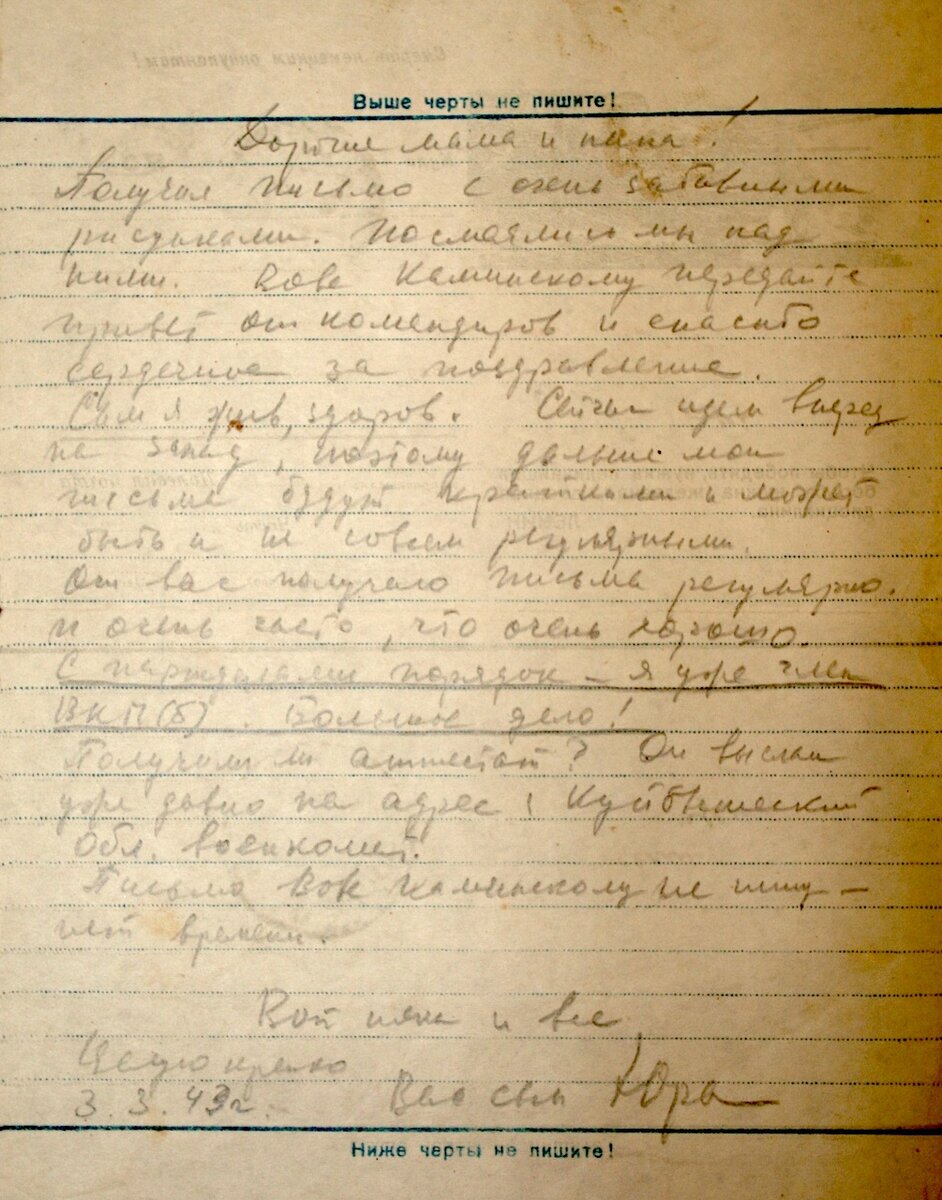 Выше черты не пишите!
Дорогие мама и папа!
Получил письмо с очень забавными
рисунками. Посмеялись мы над
ними. Вове Каминскому передайте
привет от командиров и спасибо
сердечное за поздравление.
Сам я жив, здоров. Сейчас идем вперед
на запад, поэтому дальше мои
письма будут краткими и может
быть и не совсем регулярными.
От вас получаю письма регулярно.
и очень часто, что очень хорошо
С партделами порядок – я уже член
ВКП(б). Большое дело!
Получили ли аттестат? Он выслан
уже давно на адрес: Куйбышевский
Обл. военкомат.
Письма Вове Каминскому не пишу –
нет времени.
Вот пока и все
Целую крепко
3.3.43г. Ваш сын Юра
Ниже черты не пишите!